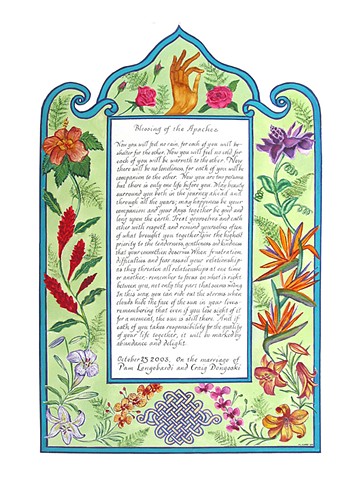 Blessing of the Apaches
Now you will feel no rain, for each of you will be
shelter for the other. Now you will feel no cold for
each of you will be warmth to the other. Now
there will be no loneliness, for each of you will be
companion to the other. Now you are two persons
but there is only one life before you. May beauty
surround you both in the journey ahead and
through all the years; may happiness be your
companion and your days together be good and
long upon the earth. Treat yourselves and each
other with respect and remind yourselves often
of what brought you together. Give the highest
priority to the tenderness, gentleness and kindness
that your connection deserves. When frustration,
difficulties and fear assail your relationship
as they threaten all relationships at one time
or another, remember to focus on what is right
between you, not only the part that seems wrong
In this way, you can ride out the storms when
clouds hide the face of the sun in your lives
remembering that even if you lose sight of it
for a moment, the sun is still there. And if
each of you takes responsibility for the quality
of your life together, it will be marked by
abundance and delight.
October 25 2003, On the marriage of
Pam Longobardi and Craig Dongoski